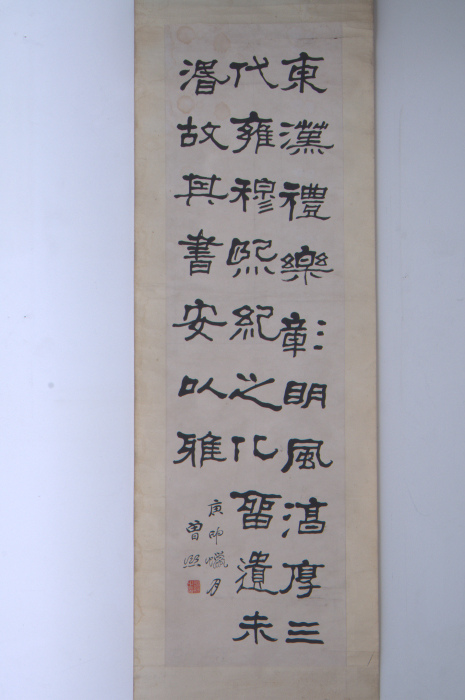 東漢禮樂彰明風淳厚三
代雍穆熙紀之化留遺未
湣故其書安以雅
庚臘月
曾熙